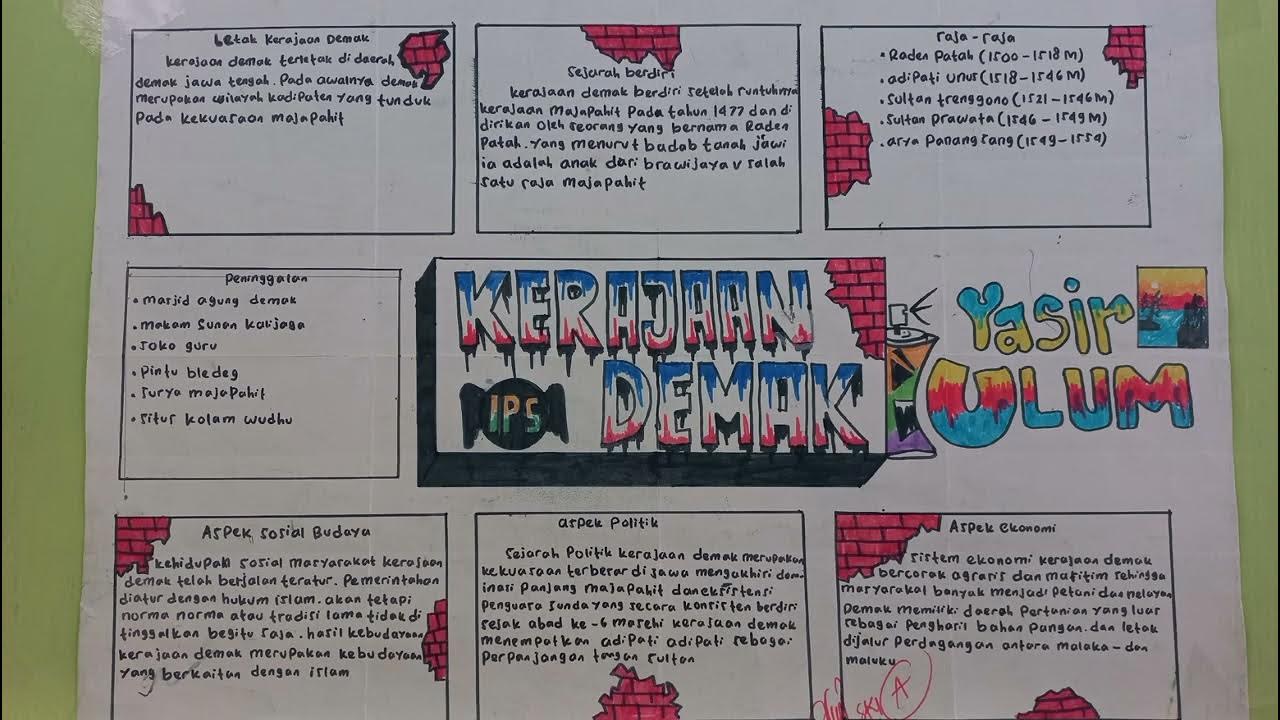 Letak Kerajaan Demak
kerajaan demak terletak di daerah
demak jawa tengah. Pada awalnya demak
merupakan wilayah kadipaten yang tunduk
Pada kekuasaan majapahit
Sejarah berdiri
kerajaan demak berdiri setelah runtuhnya
kerajaan majapahit Pada tahun 1477 dan di
dirikan oleh seorang yang bernama Raden
Patah. yang menurut badab tanah jawi
ia adalah anak dari brawijaya v salah
satu raja majapahit
raja-raja
• Raden Patah (1500-1518 M)
• adipati unus (1518-1546 M)
• Sultan trenggono (1521-1546 M)
• Sultan Prawata (1546-1549 M)
• arya Panangsang (1549-1554)
Peninggalan
• masjid agung demak
• makam Sunan kalijaga
• Soko guru
• Pintu bledeg
• Surya majapahit
• Situr kolam wudhu
KERAJAAN
DEMAK
IPS
Yasir
ULUM
Aspek Sosial Budaya
kehidupan sosial masyarakat kerajaan
demak telah berjalan teratur. Pemerintahan
diatur dengan hukum islam. akan tetapi
norma norma atau tradisi lama tidak di
tinggalkan begitu saja. hasil kebudayaan
kerajaan demak merupakan kebudayaan
yang berkaitan dengan islam
aspek Politik
Sejarah Politik kerajaan demak merupakan
kekuasaan terbesar di Jawa mengakhiri dom-
inasi Panjang majapahit dan eksistensi
Penguasa Sunda yang secara konsisten berdiri
sejak abad ke-6 masehi kerajaan demak
menempatkan adipati adipati sebagai
perpanjangan tangan sultan
Aspek ekonomi
Sistem ekonomi kerajaan demak
bercorak agraris dan maritim sehingga
masyarakat banyak menjadi Petani dan nelayan
Demak memiliki daerah Pertanian yang luas
sebagai Penghasil bahan Pangan. dan letak
dijalur Perdagangan antara malaka-dan
maluku
A